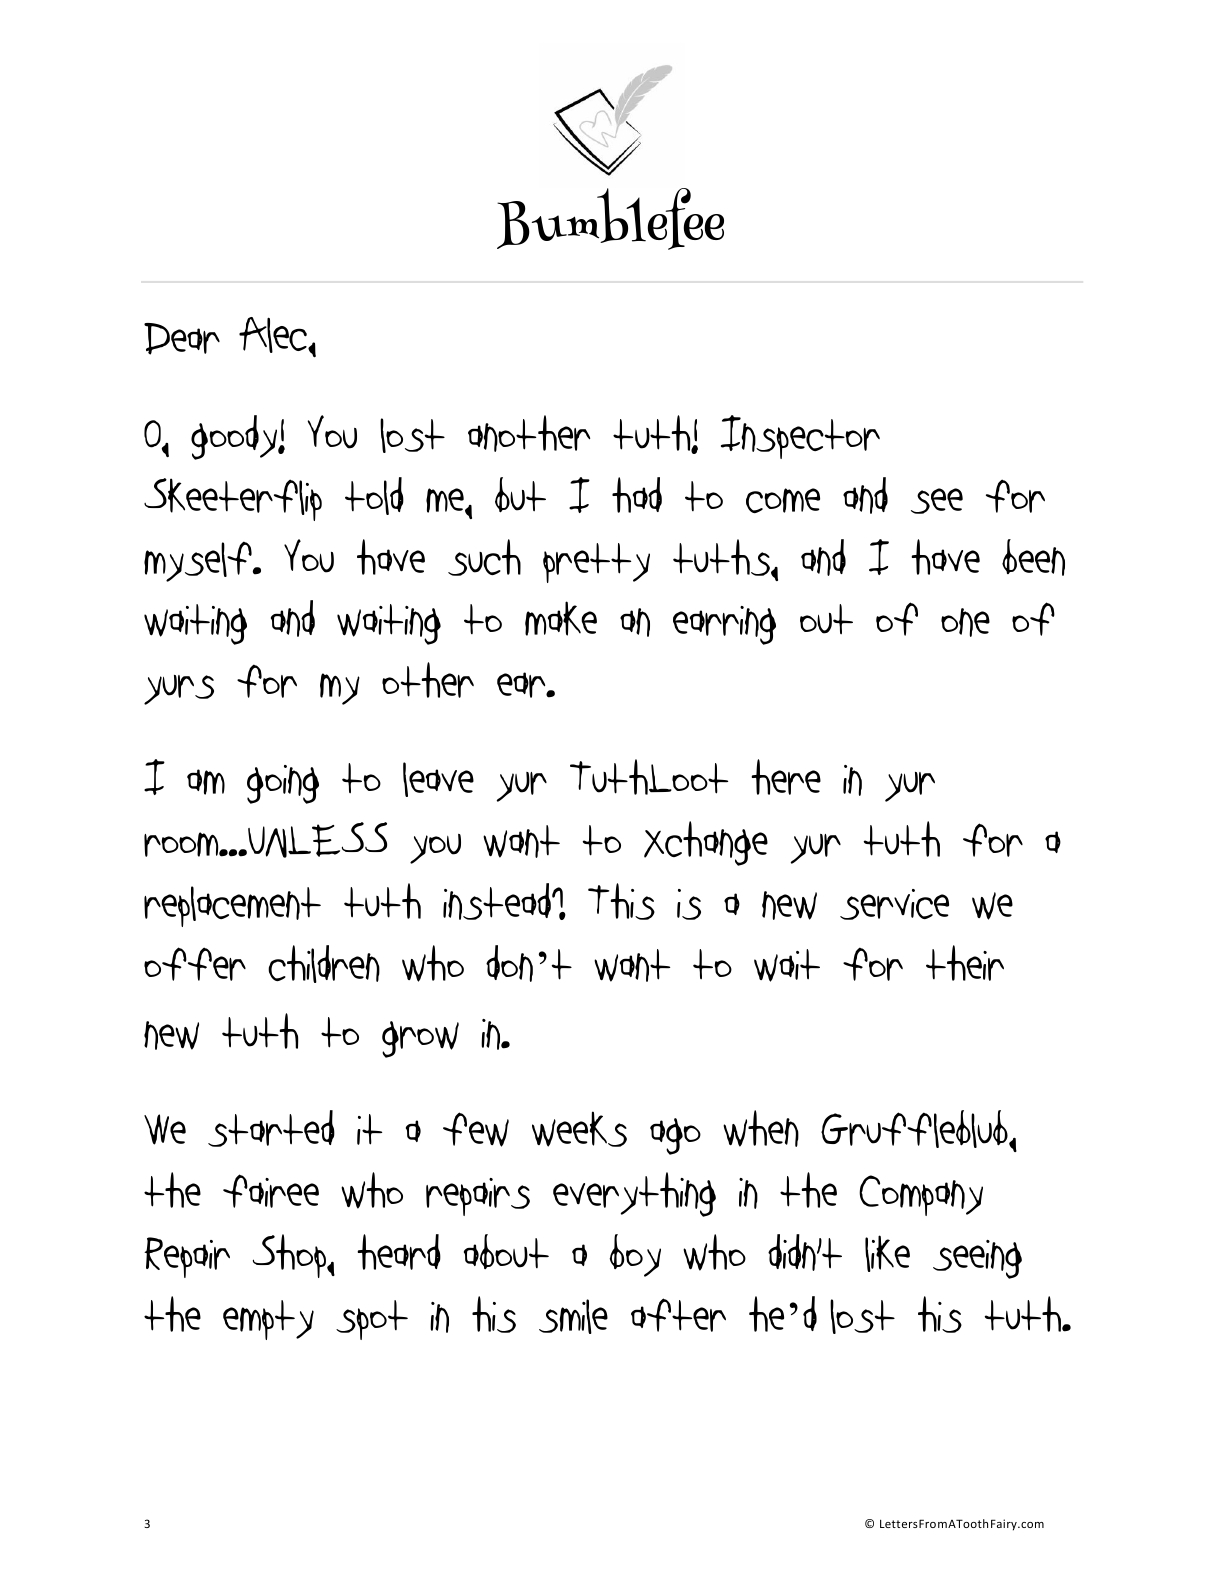 Bumblefee
Dear Alec,
O, goody! You lost another tuth! Inspector
Skeeterflip told me, but I had to come and see for
myself. You have such pretty tuths, and I have been
waiting and waiting to make an earring out of one of
yurs for my other ear.
I am going to leave yur TuthLoot here in yur
room...UNLESS you want to xchange yur tuth for a
replacement tuth instead? This is a new service we
offer children who don’t want to wait for their
new tuth to grow in.
We started it a few weeks ago when Gruffleblub,
the fairee who repairs everything in the Company
Repair Shop, heard about a boy who didn't like seeing
the empty spot in his smile after he’d lost his tuth.
3 © LettersFromAToothFairy.com